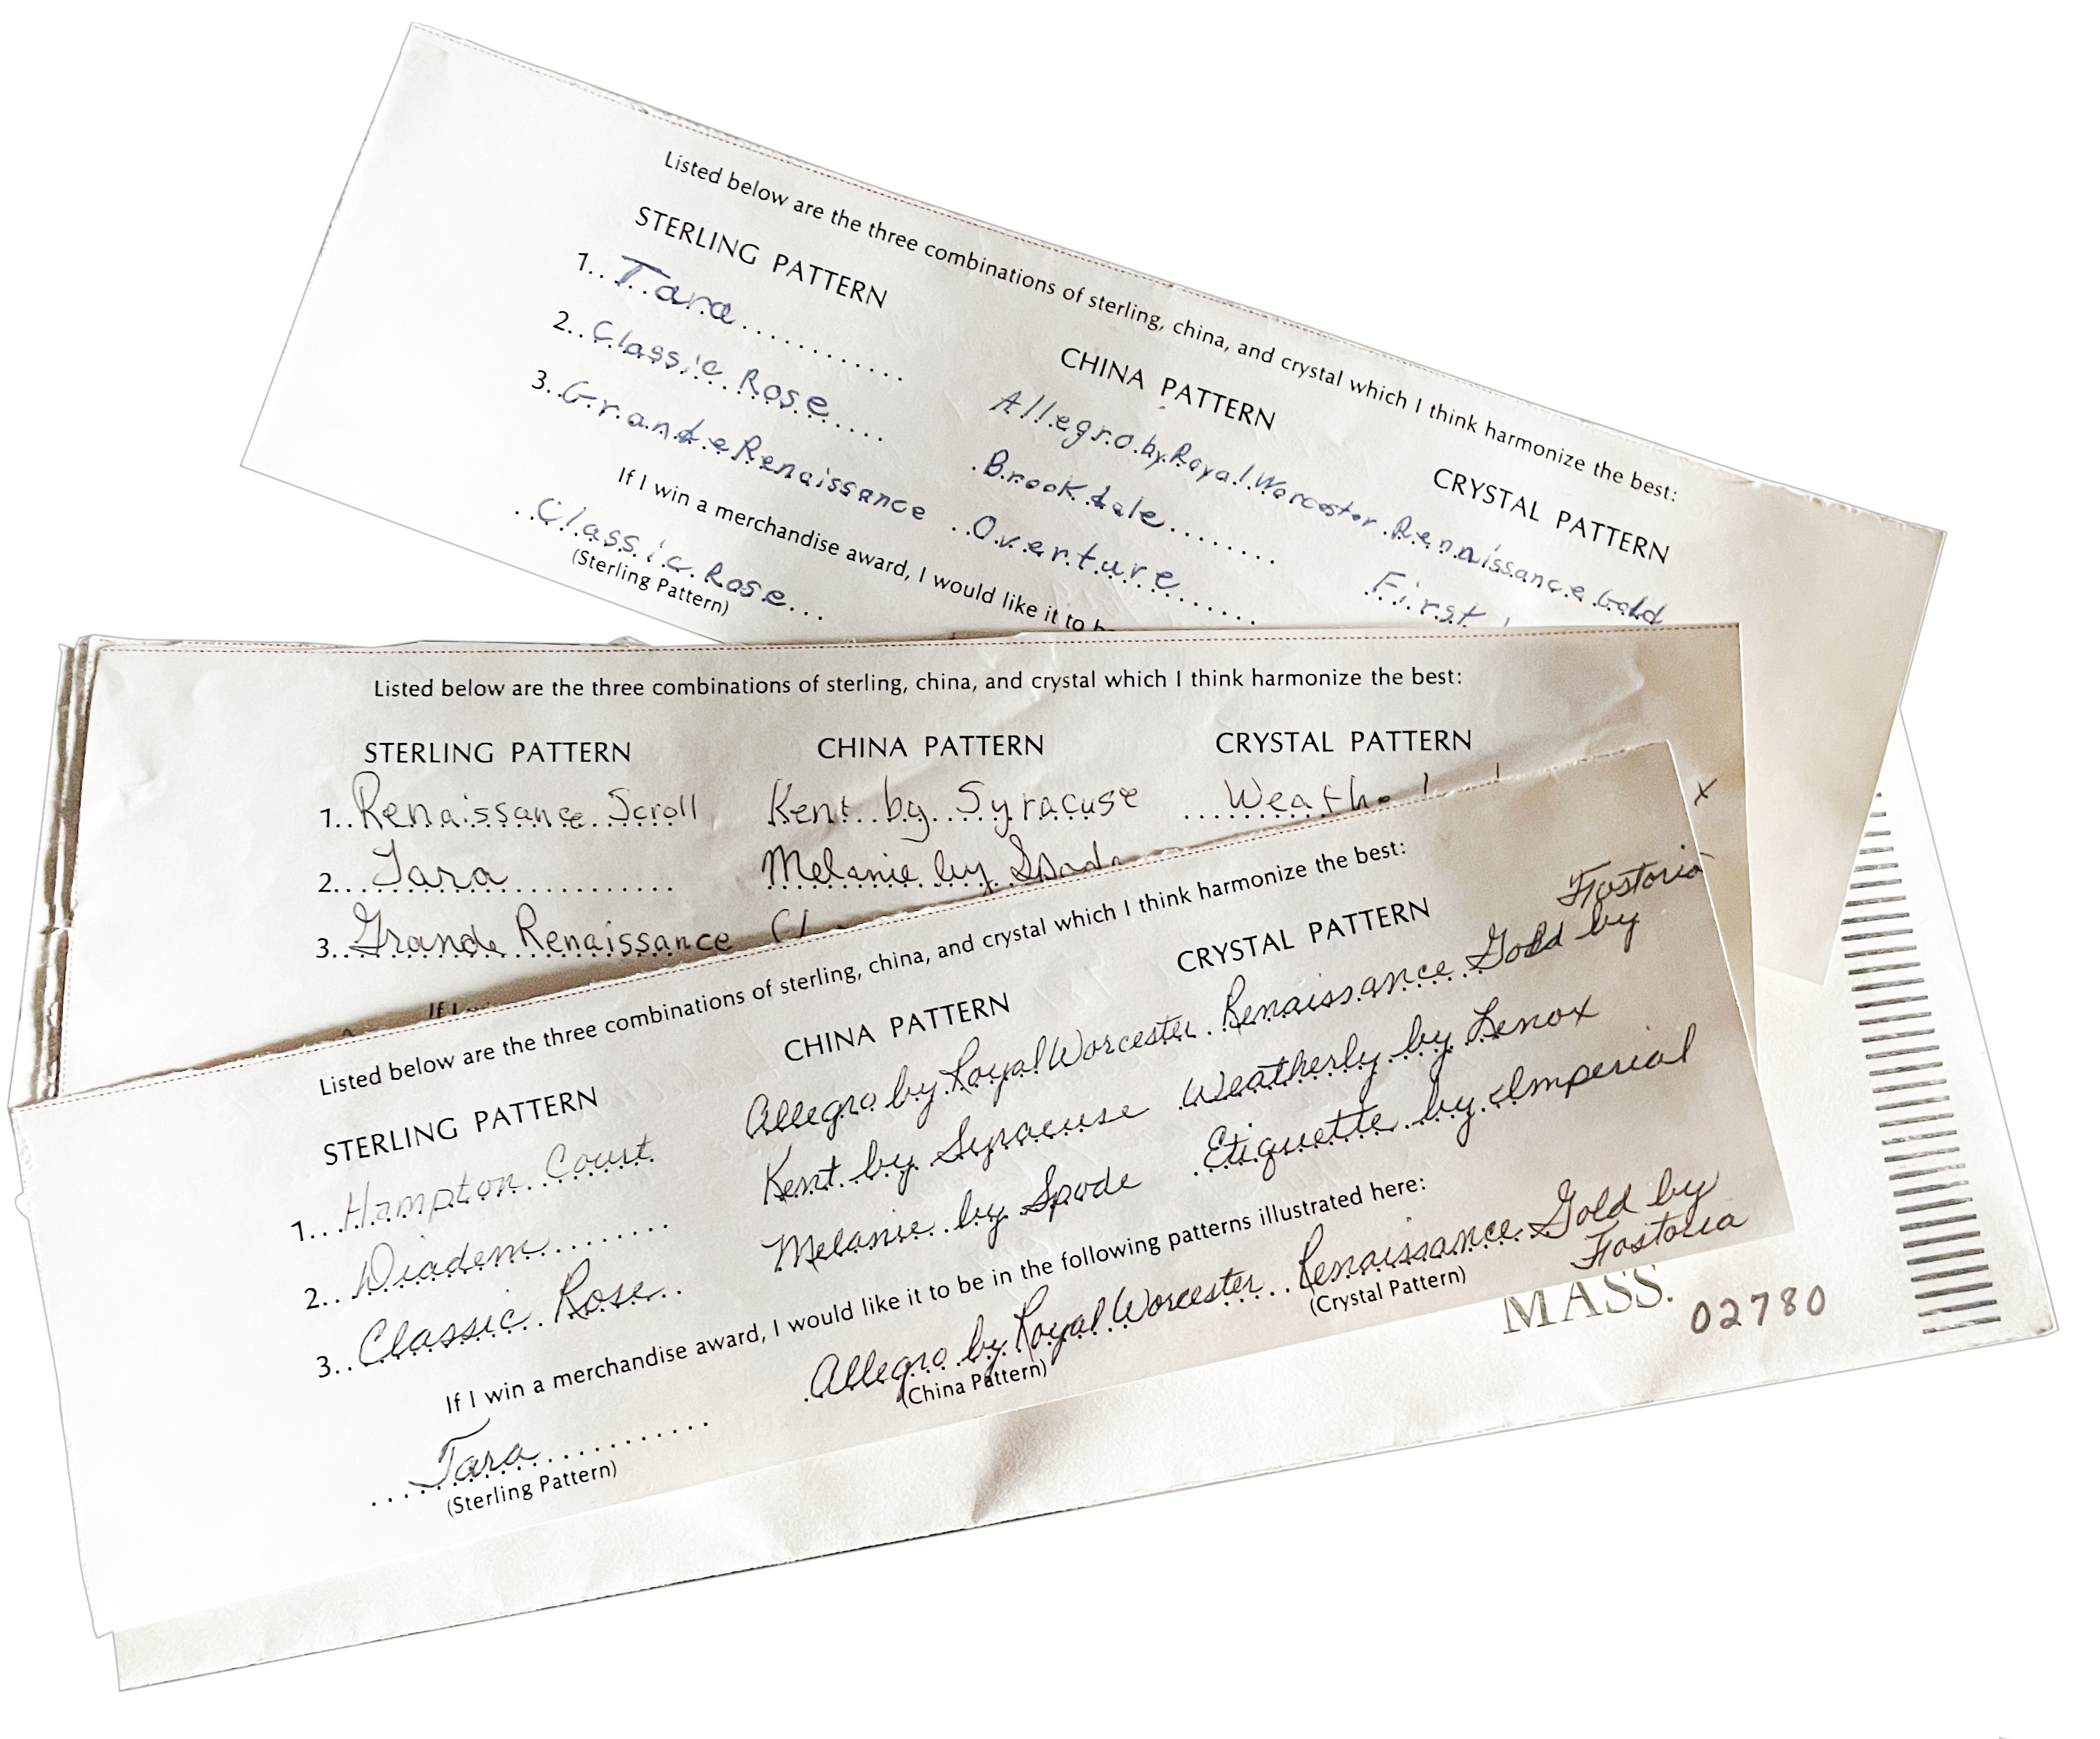 Listed below are the three combinations of sterling, china, and crystal which I think harmonize the best:
STERLING PATTERN CHINA PATTERN CRYSTAL PATTERN
1. Tara Allegro by Royal Worcester Rennaissance Gold
2. Classic Rose Brookdale First
3. Grande Renaissance Overture
If I win a merchandise award, I would like it to
Classic Rose
(Sterling Pattern)
Listed below are the three combinations of sterling, china, and crystal which I think harmonize the best:
STERLING PATTERN CHINA PATTERN CRYSTAL PATTERN
1. Renaissance Scroll Kent by Syracuse
2. Tara Melanie by Spode
3. Grande Renaissance
If I
x
Listed below are the three combinations of sterling, china, and crystal which I think harmonize the best:
STERLING PATTERN CHINA PATTERN CRYSTAL PATTERN
1. Hampton Court Allegro by Royal Worcester Renaissance Gold by Fostoria
2. Diadem Kent by Syracuse Weatherly by Lenox
3. Classic Rose Melanie by Spode Etiquette by Imperial
If I win a merchandise award, I would like it to be in the following patterns illustrated here:
Tara Allegro by Royal Worcester Renaissance Gold by Fostoria
(Sterling Pattern) (China Pattern) (Crystal Pattern)
MASS. 02780